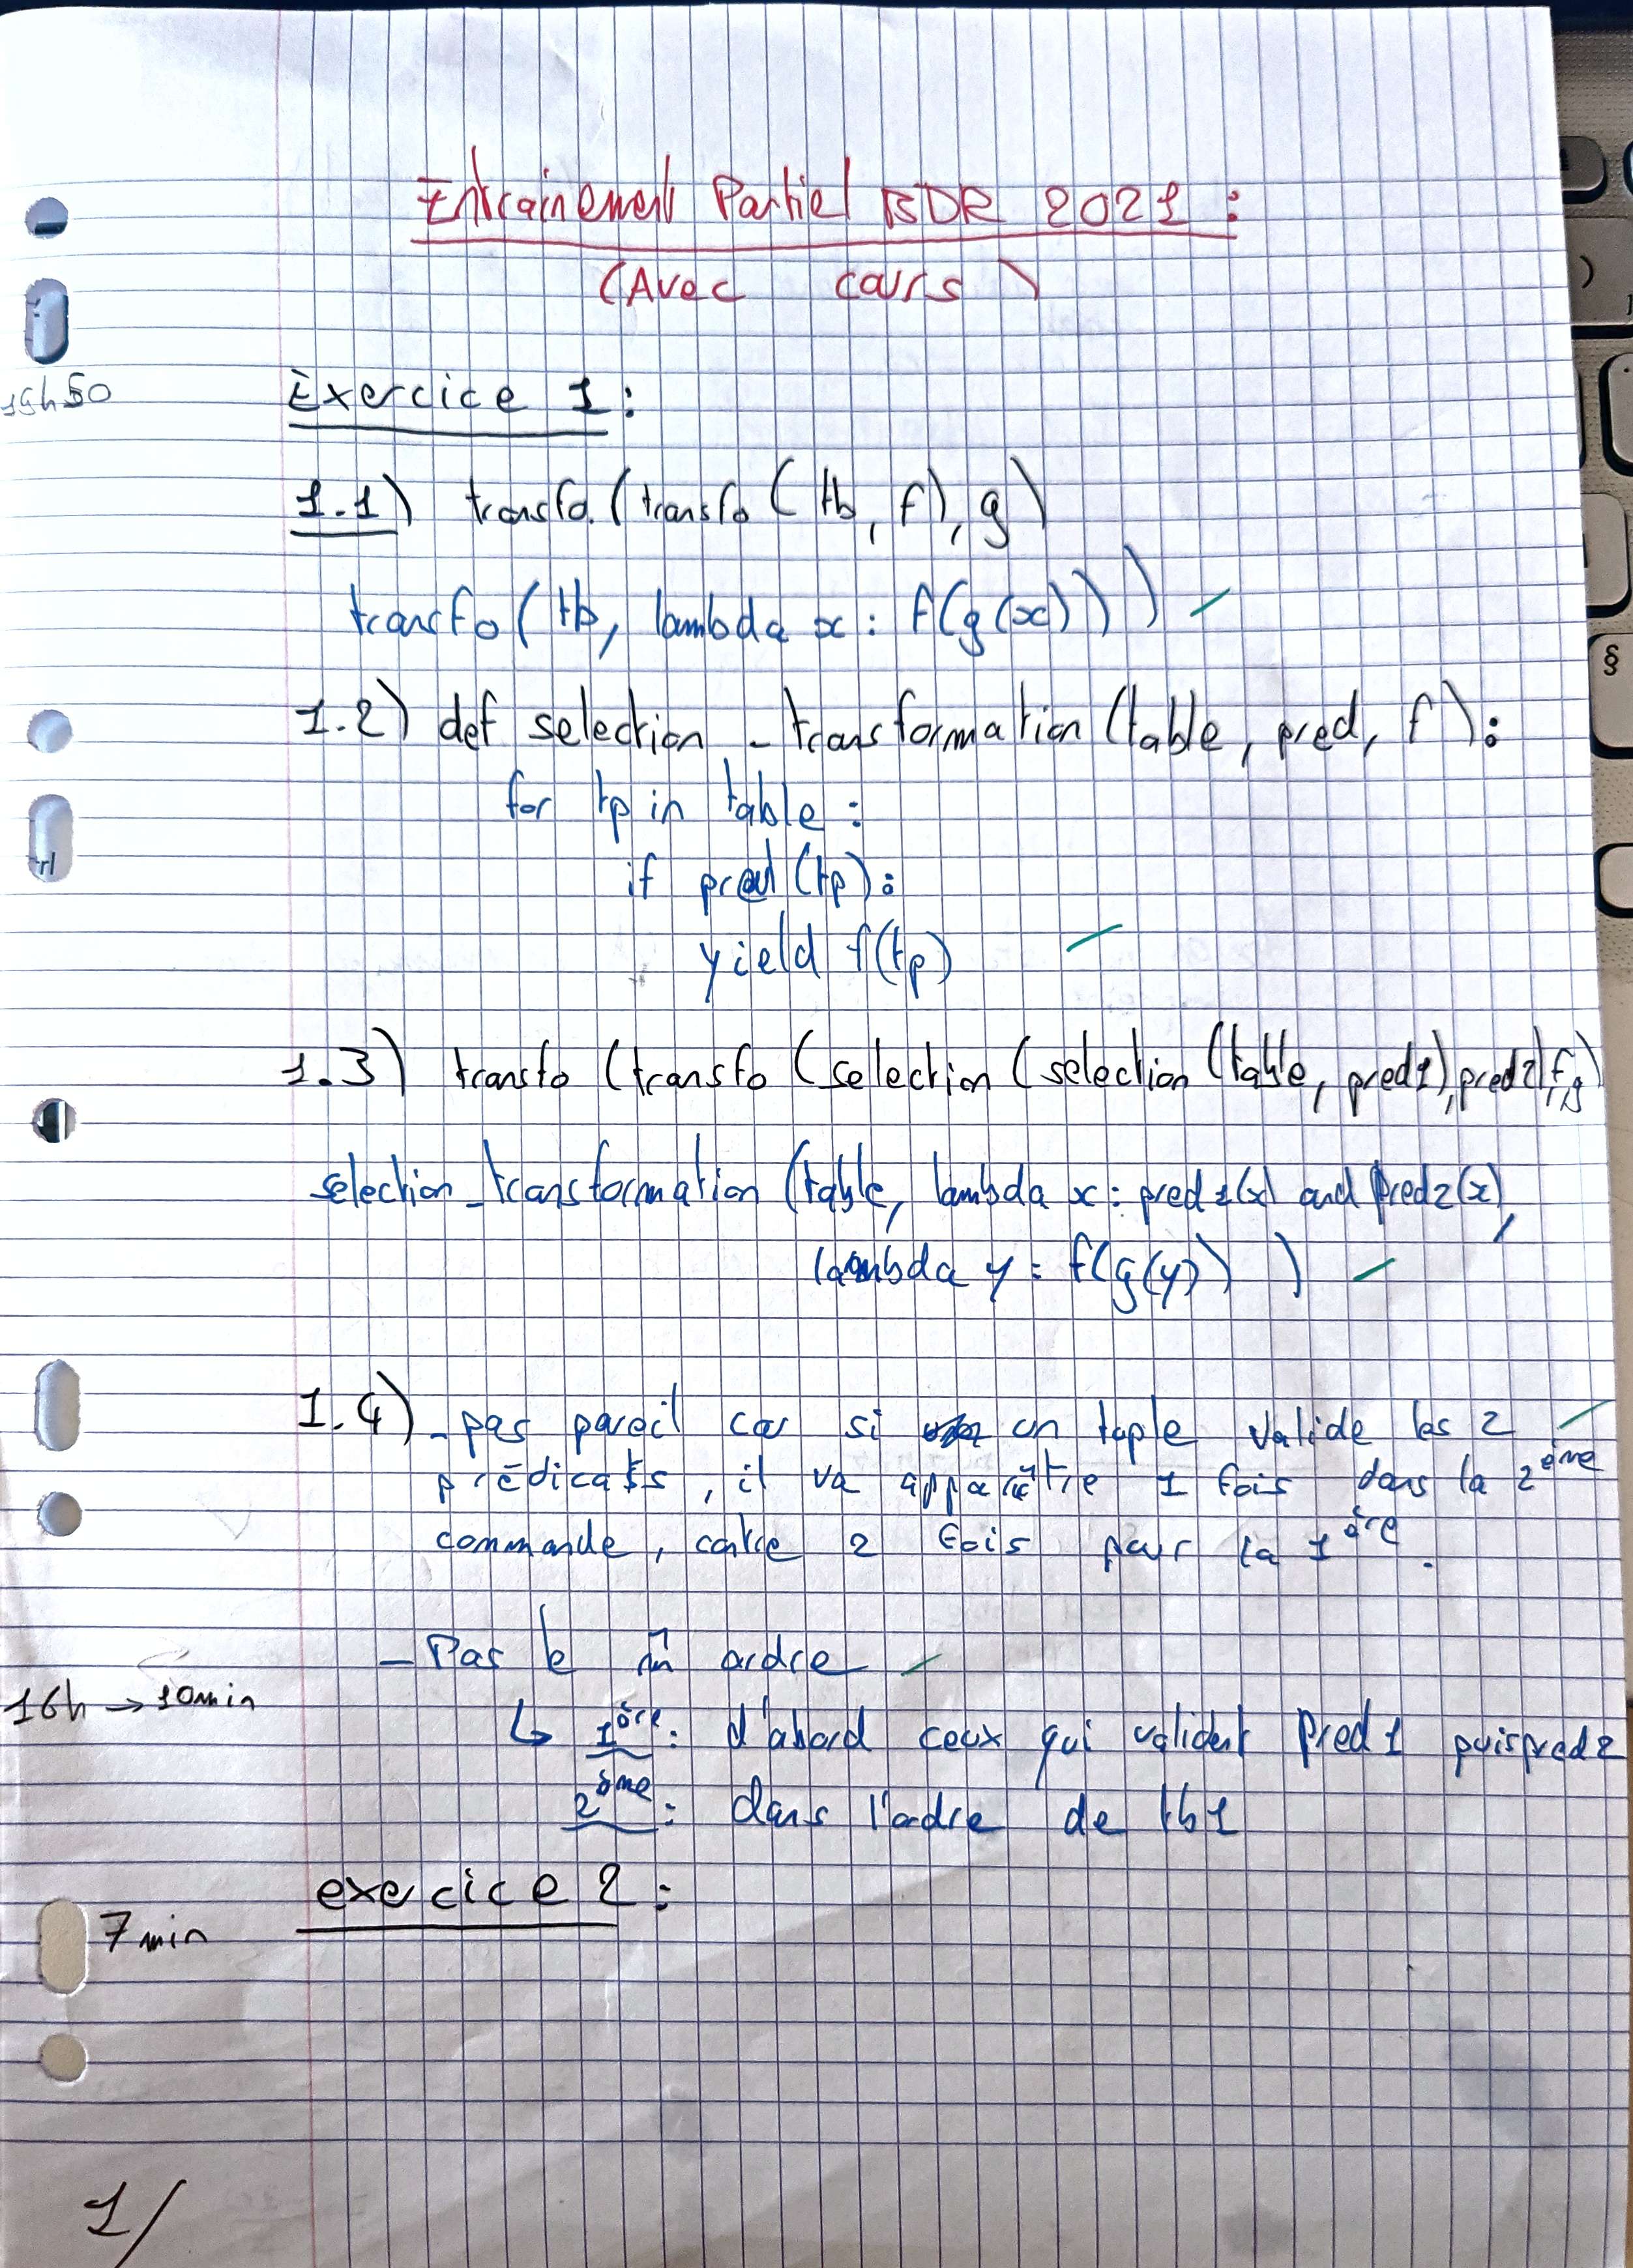 Entrainement Partiel BDR 2021 :
(Avec cours)
15h50
Exercice 1 :
1.1) transfo (transfo (tb, f), g)
transfo (tb, lambda x : f(g(x)))
1.2) def selection_transformation (table, pred, f) :
for tp in table :
if pred (tp) :
yield f(tp)
1.3) transfo (transfo (selection (selection (table, pred1), pred2), f, g)
selection_transformation (table, lambda x : pred1(x) and pred2(x),
lambda y = f(g(y)) )
1.4) - pas pareil car si un tuple valide les 2
prédicats, il va apparaître 1 fois dans la 2ème
commande, contre 2 fois pour la 1ère.
- Pas le m̂ ordre
16h → 10min
↳ 1ère : d'abord ceux qui valident pred1 puis pred2
2ème : dans l'ordre de tb1
exercice 2 :
7 min
1/
rl
)
§